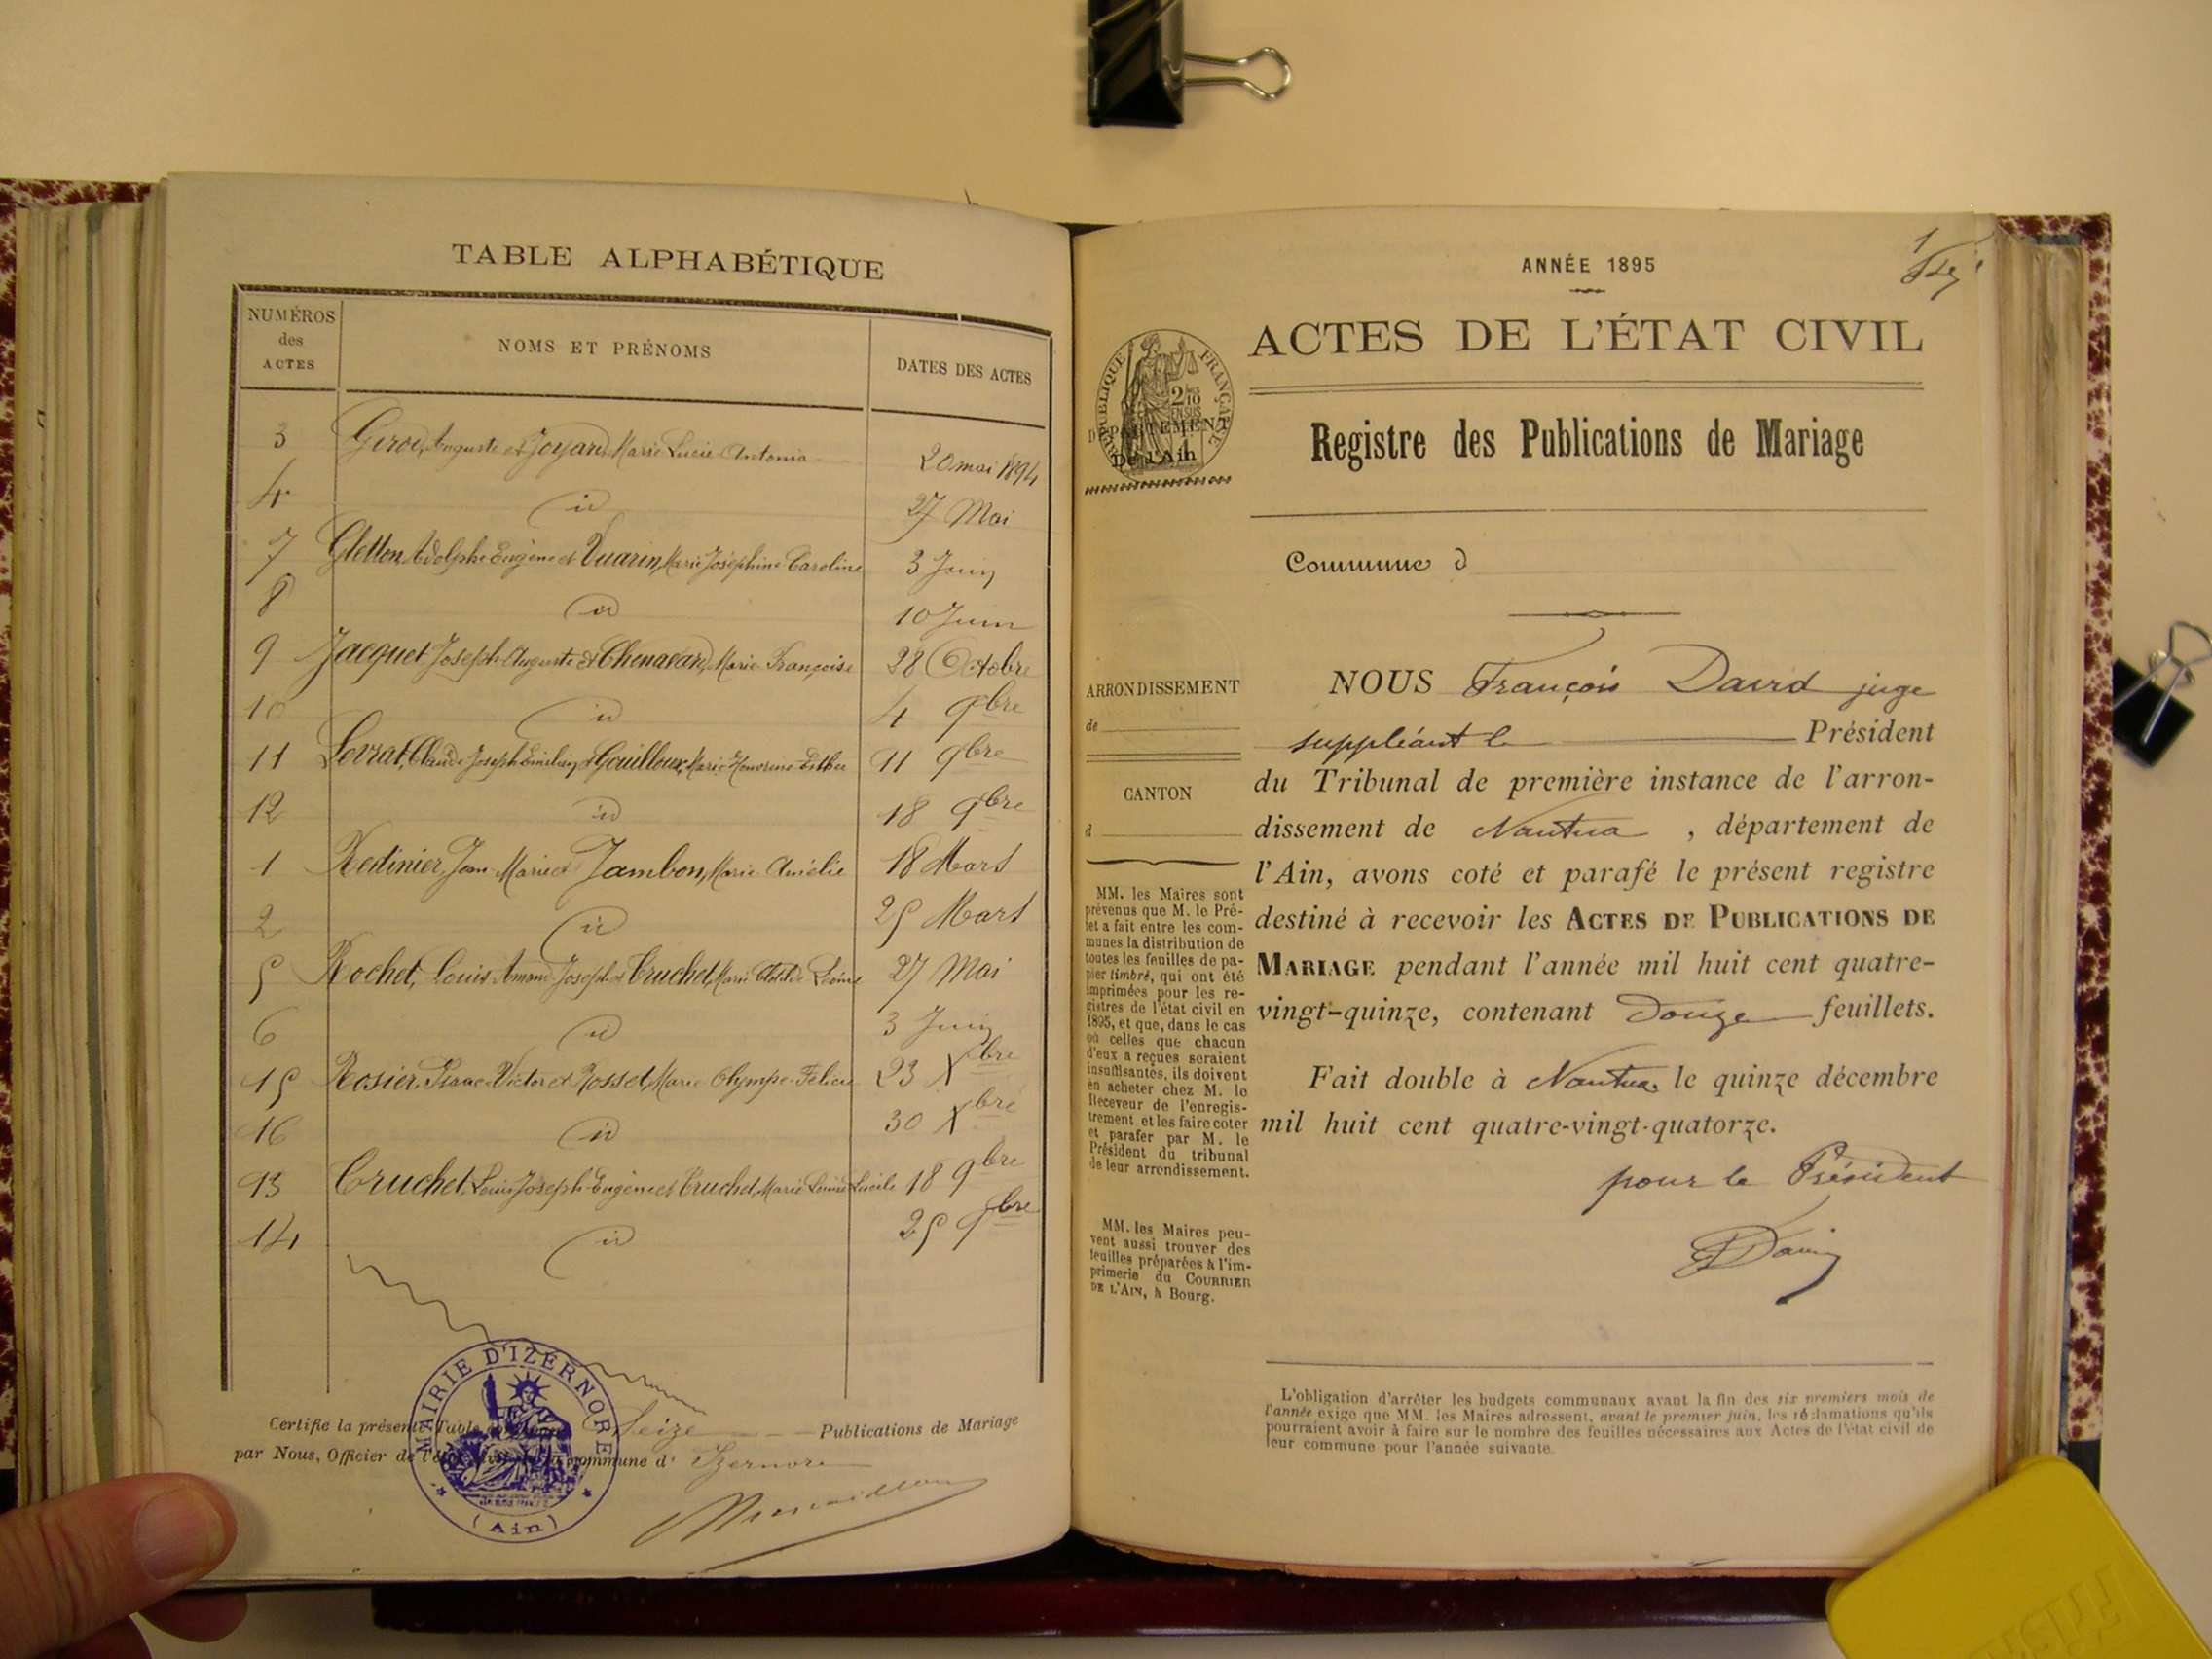 TABLE ALPHABÉTIQUE
NUMÉROS des ACTES
NOMS ET PRÉNOMS
DATES DES ACTES
3 Girod, Auguste et Joyard, Marie Lucie Antonia 20 mai 1894
4 id 27 Mai
7 Gletton, Adolphe Eugène et Vuarin, Marie Joséphine Caroline 3 Juin
8 id 10 Juin
9 Jacquet Joseph Auguste et Chenavard, Marie Françoise 28 Octobre
10 id 4 9bre
11 Levrat, Claude Joseph Emilien et Gouilloux, Marie Honorine Esther 11 9bre
12 id 18 9bre
1 Redinier, Jean-Marie et Jambon, Marie Amélie 18 Mars
2 id 25 Mars
5 Rochet, Louis Amand Joseph et Truchet, Marie Clotilde 27 Mai
6 id 3 Juin
15 Rosier, Isaac-Victor et Rosset, Marie-Olympe-Félicie 23 Xbre
16 id 30 Xbre
13 Truchet, Louis Joseph-Eugène et Truchet, Marie Louise Lucile 18 9bre
14 id 25 9bre
Certifie la présente Table Seize Publications de Mariage
par Nous, Officier de l'état commune d' Izernore
MAIRIE D'IZERNORE
(Ain)
1
ANNÉE 1895
ACTES DE L'ÉTAT CIVIL
RÉPUBLIQUE FRANÇAISE
2/10 EN SUS
DÉPARTEMENT
De l'Ain
Registre des Publications de Mariage
Commune d
ARRONDISSEMENT
de
CANTON
d
MM. les Maires sont
prévenus que M. le Pré-
fet a fait entre les com-
munes la distribution de
toutes les feuilles de pa-
pier timbré, qui ont été
imprimées pour les re-
gistres de l'état civil en
1895, et que, dans le cas
où celles que chacun
d'eux a reçues seraient
insuffisantes, ils doivent
en acheter chez M. le
Receveur de l'enregis-
trement et les faire coter
et parafer par M. le
Président du tribunal
de leur arrondissement.
MM. les Maires peu-
vent aussi trouver des
feuilles préparées à l'im-
primerie du COURRIER
DE L'AIN, à Bourg.
NOUS François David juge
suppléant le Président
du Tribunal de première instance de l'arron-
dissement de Nantua, département de
l'Ain, avons coté et parafé le présent registre
destiné à recevoir les ACTES DE PUBLICATIONS DE
MARIAGE pendant l'année mil huit cent quatre-
vingt-quinze, contenant Douze feuillets.
Fait double à Nantua le quinze décembre
mil huit cent quatre-vingt-quatorze.
pour le Président
David
L'obligation d'arrêter les budgets communaux avant la fin des six premiers mois de
l'année exige que MM. les Maires adressent, avant le premier juin, les réclamations qu'ils
pourraient avoir à faire sur le nombre des feuilles nécessaires aux Actes de l'état civil de
leur commune pour l'année suivante.